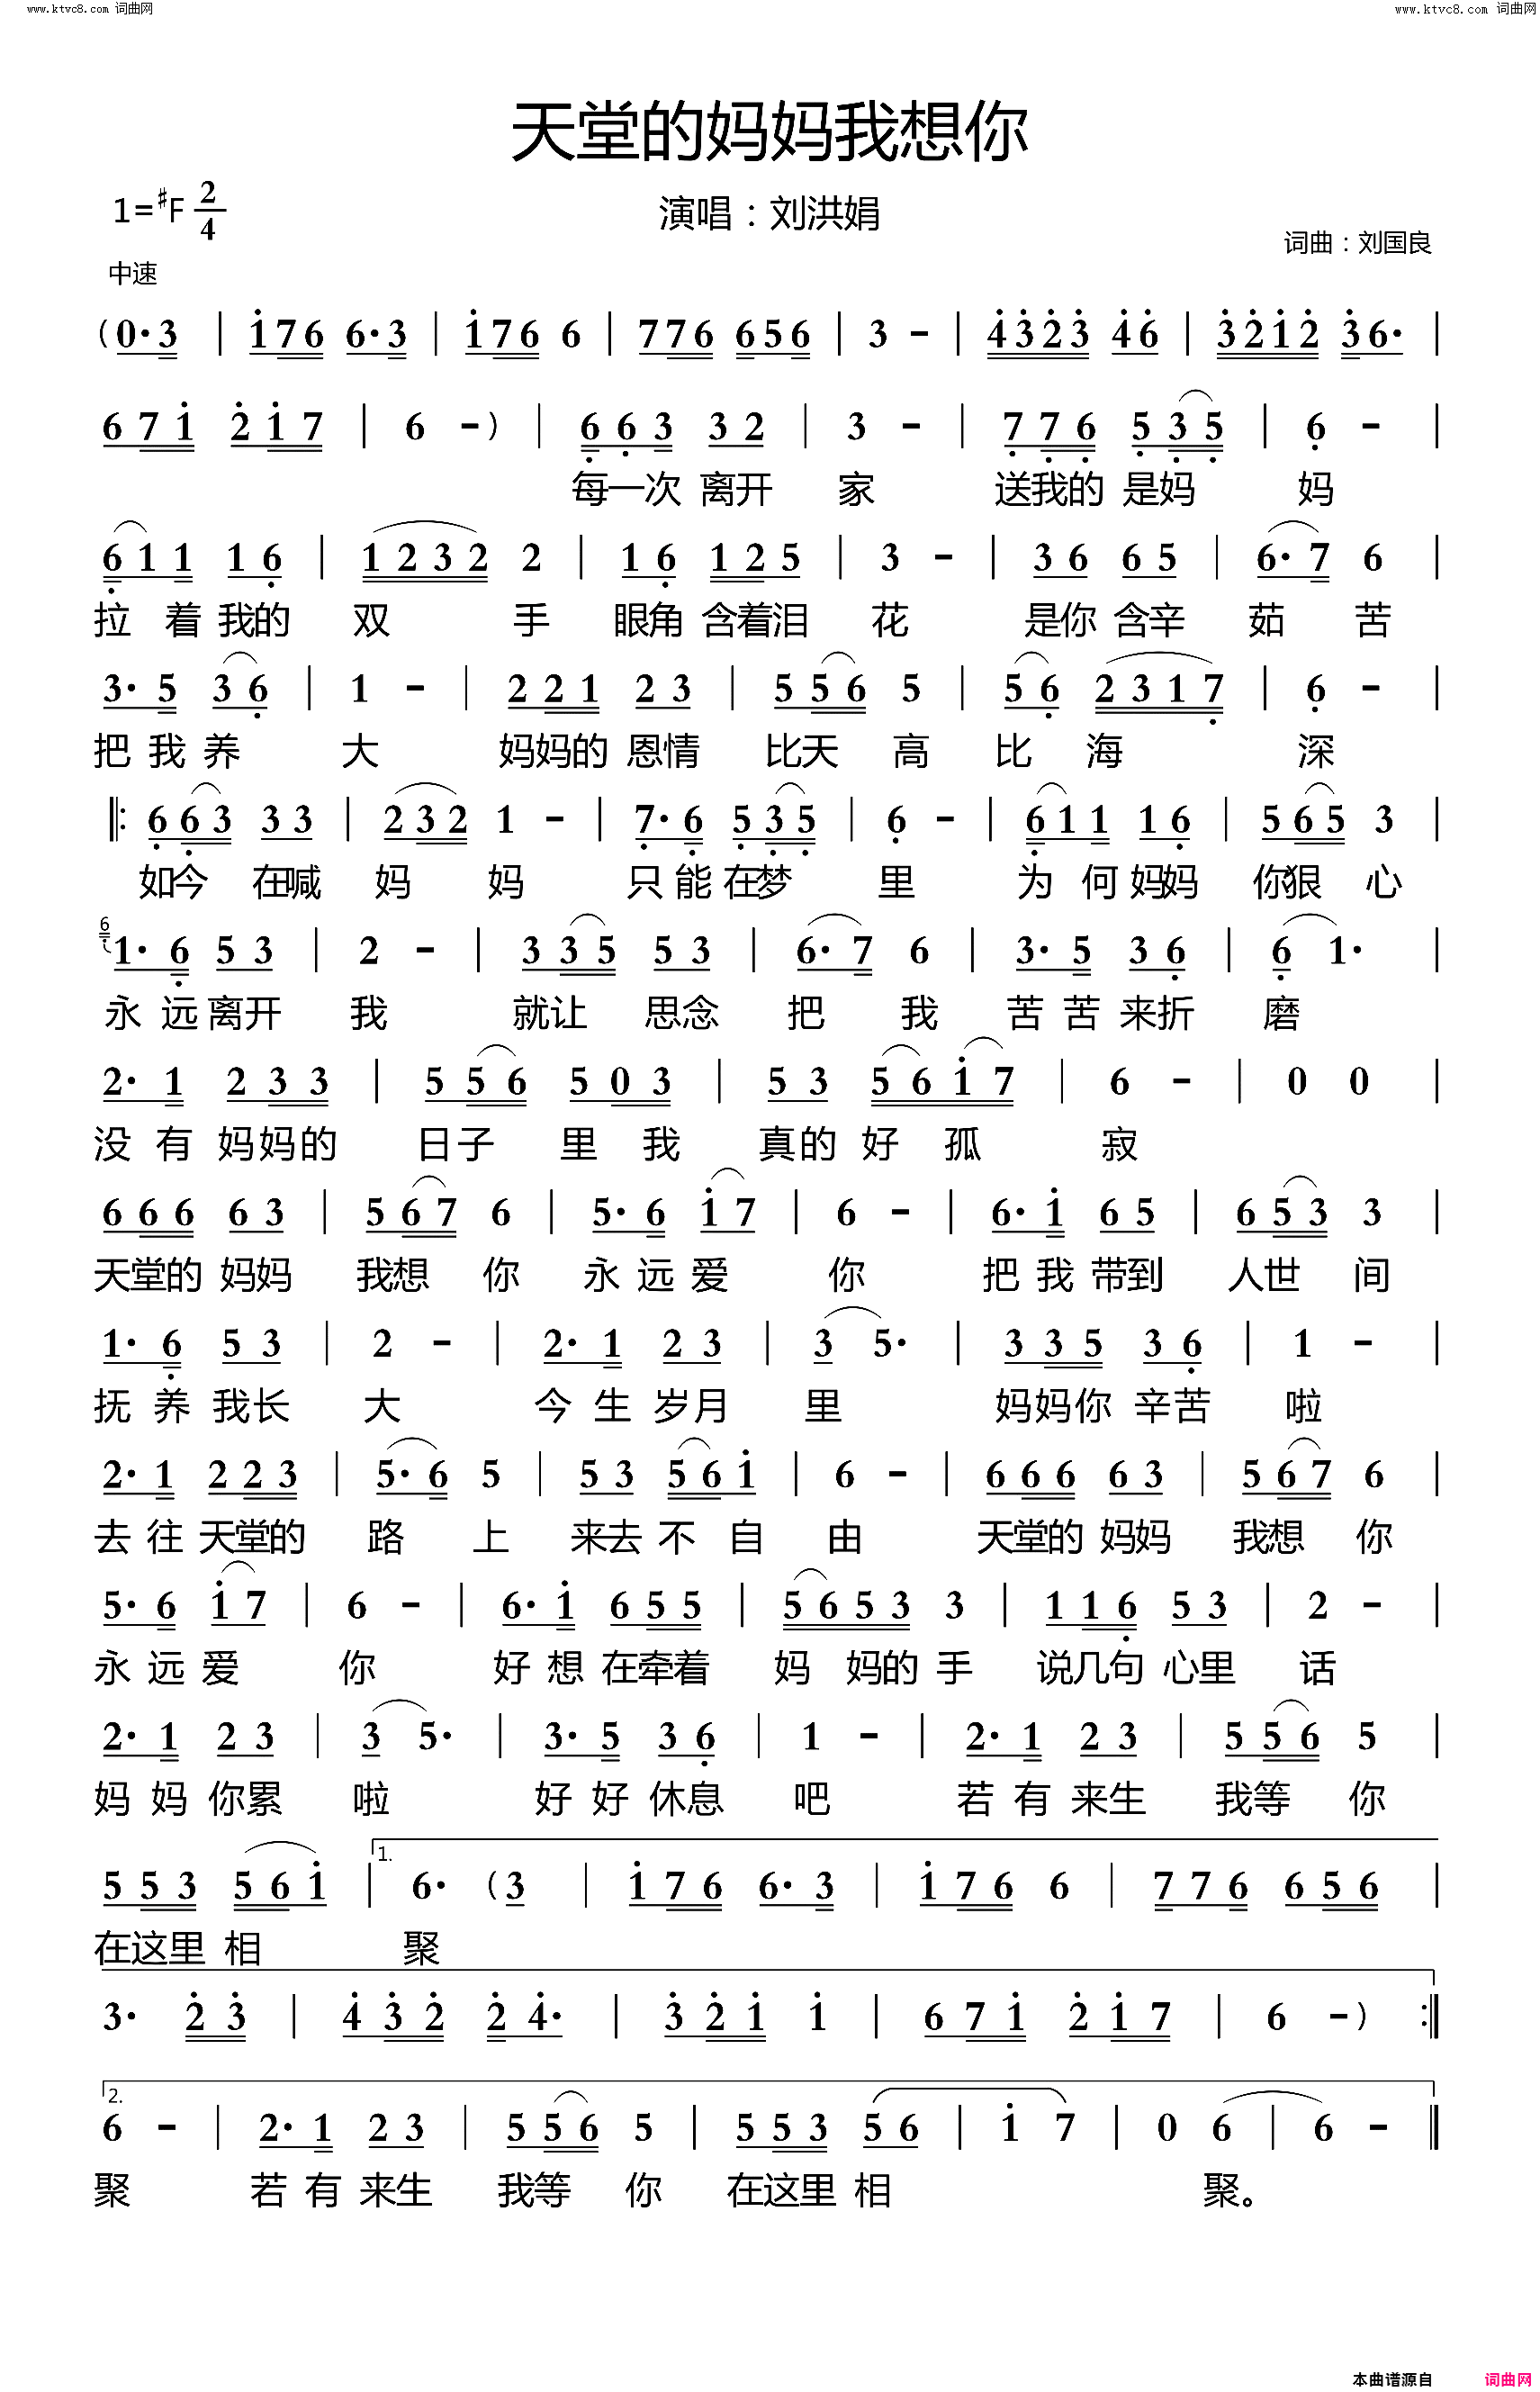 www.ktvc8.com 词曲网
www.ktvc8.com 词曲网
天堂的妈妈我想你
1=♯F 2/4
演唱：刘洪娟
词曲：刘国良
中速
(0·3 | i76 6·3 | i76 6 | 776 656 | 3 - | 4323 46 | 3212 36· |
67i 2i7 | 6 -) | 663 32 | 3 - | 776 535 | 6 - |
每一次 离开 家 送我的 是妈 妈
611 16 | 1232 2 | 16 125 | 3 - | 36 65 | 6·7 6 |
拉 着 我的 双 手 眼角 含着泪 花 是你 含辛 茹 苦
3·5 36 | 1 - | 221 23 | 556 5 | 56 2317 | 6 - |
把 我 养 大 妈妈的 恩情 比天 高 比 海 深
‖: 663 33 | 232 1 - | 7·6 535 | 6 - | 611 16 | 565 3 |
如今 在喊 妈 妈 只 能 在梦 里 为 何 妈妈 你狠 心
6 1·6 53 | 2 - | 335 53 | 6·7 6 | 3·5 36 | 6 1· |
永 远 离开 我 就让 思念 把 我 苦 苦 来折 磨
2·1 233 | 556 503 | 53 56i7 | 6 - | 0 0
没 有 妈妈的 日子 里 我 真的 好 孤 寂
666 63 | 567 6 | 5·6 i7 | 6 - | 6·i 65 | 653 3 |
天堂的 妈妈 我想 你 永 远 爱 你 把 我 带到 人世 间
1·6 53 | 2 - | 2·1 23 | 3 5· | 335 36 | 1 - |
抚 养 我长 大 今 生 岁月 里 妈妈你 辛苦 啦
2·1 223 | 5·6 5 | 53 56i | 6 - | 666 63 | 567 6 |
去 往 天堂的 路 上 来去 不 自 由 天堂的 妈妈 我想 你
5·6 i7 | 6 - | 6·i 655 | 5653 3 | 116 53 | 2 - |
永 远 爱 你 好 想 在牵着 妈 妈的 手 说几句 心里 话
2·1 23 | 3 5· | 3·5 36 | 1 - | 2·1 23 | 556 5 |
妈 妈 你累 啦 好 好 休息 吧 若 有 来生 我等 你
553 56i | 1. 6· (3 | i76 6·3 | i76 6 | 776 656 |
在这里 相 聚
3· 23 | 432 24· | 32i i | 67i 2i7 | 6 -) :‖
2. 6 - | 2·1 23 | 556 5 | 553 56 | i 7 | 0 6 | 6 - ‖
聚 若 有 来生 我等 你 在这里 相 聚。
本曲谱源自 词曲网